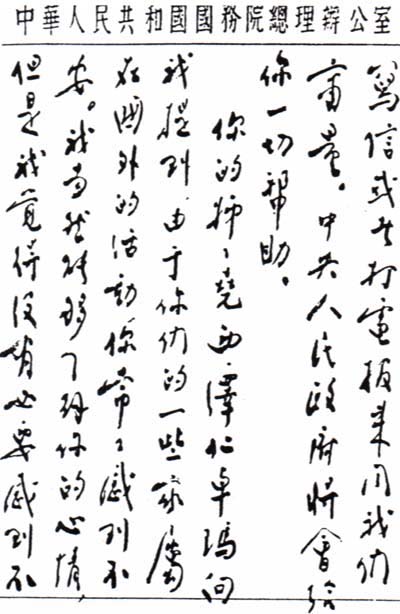 中華人民共和國國務院總理辦公室
寫信或者打電報来同我们
商量。中央人民政府將會给
你一切幫助。
你的姊々堯西澤仁卓瑪向
我提到由于你们的一些家屬
在國外的活動你常々感到不
安。我当然能够了解你的心情，
但是我覺得没有必要感到不